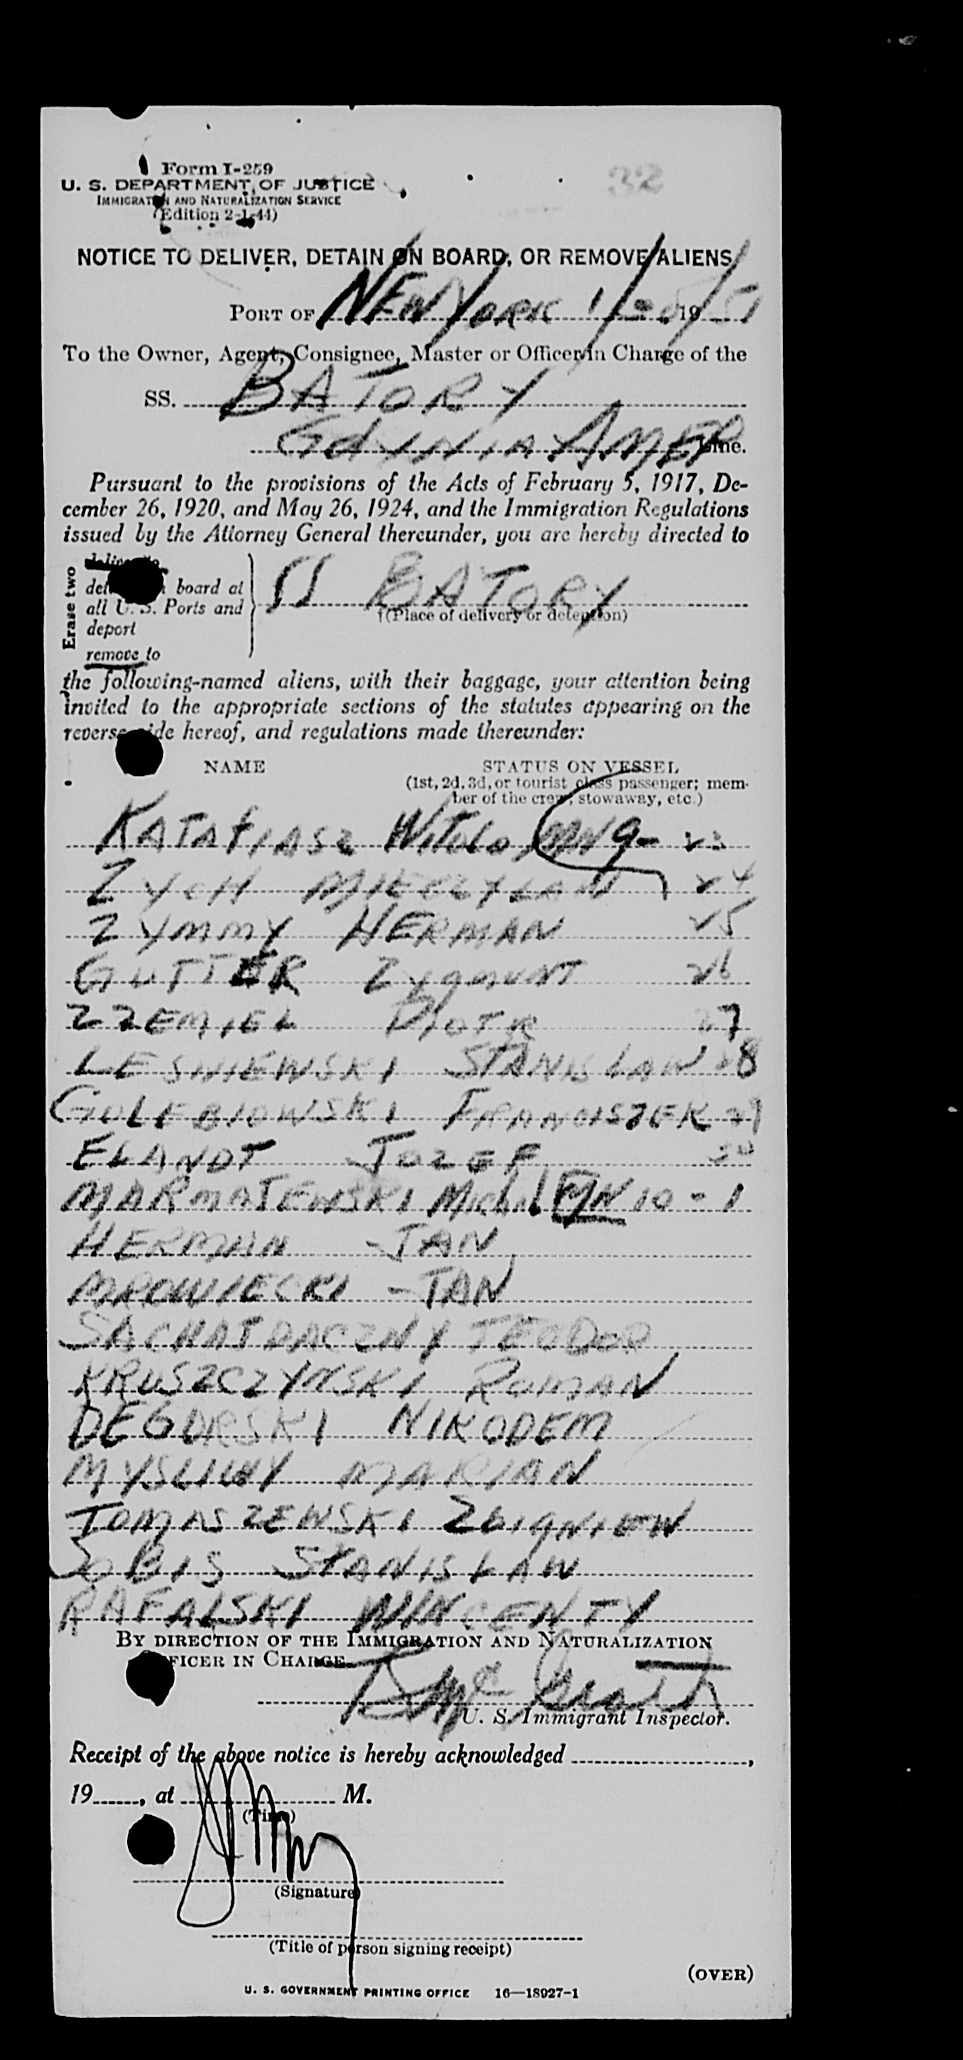 32
Form I-259
U. S. DEPARTMENT OF JUSTICE
IMMIGRATION AND NATURALIZATION SERVICE
(Edition 2-1-44)
NOTICE TO DELIVER, DETAIN ON BOARD, OR REMOVE ALIENS
PORT OF NEW YORK 1/ /1951
To the Owner, Agent, Consignee, Master or Officer in Charge of the
SS. BATORY
GDYNIA AMER Line.
Pursuant to the provisions of the Acts of February 5, 1917, De-
cember 26, 1920, and May 26, 1924, and the Immigration Regulations
issued by the Attorney General thereunder, you are hereby directed to
Erase two
deliver to
detain on board at
all U. S. Ports and
deport
remove to
SS BATORY
(Place of delivery or detention)
the following-named aliens, with their baggage, your attention being
invited to the appropriate sections of the statutes appearing on the
reverse side hereof, and regulations made thereunder:
NAME STATUS ON VESSEL
(1st, 2d, 3d, or tourist class passenger; mem-
ber of the crew, stowaway, etc.)
KATAFIASZ WITOLD 9- 23
ZYCH MIECZYSLAW 24
ZYMMY HERMAN 25
GUTTER ZYGMUNT 26
ZZEMIEL PIOTR 27
LESNIEWSKI STANISLAW 28
GOLEBIOWSKI FRANCISZEK 29
ELANDT JOZEF 30
MARMAJEWSKI Michal MN 10-1
HERMAN JAN
MROWIECKI JAN
SACHAJDACZNY TEODOR
KRUSZCZYNSKI ROMAN
DEGORSKI NIKODEM
MYSLIWY MARIAN
TOMASZEWSKI ZBIGNIEW
SOBIS STANISLAW
RAFALSKI WINCENTY
BY DIRECTION OF THE IMMIGRATION AND NATURALIZATION
OFFICER IN CHARGE
U. S. Immigrant Inspector.
Receipt of the above notice is hereby acknowledged ,
19 , at M.
(Time)
(Signature)
(Title of person signing receipt)
(OVER)
U. S. GOVERNMENT PRINTING OFFICE 16—18927-1